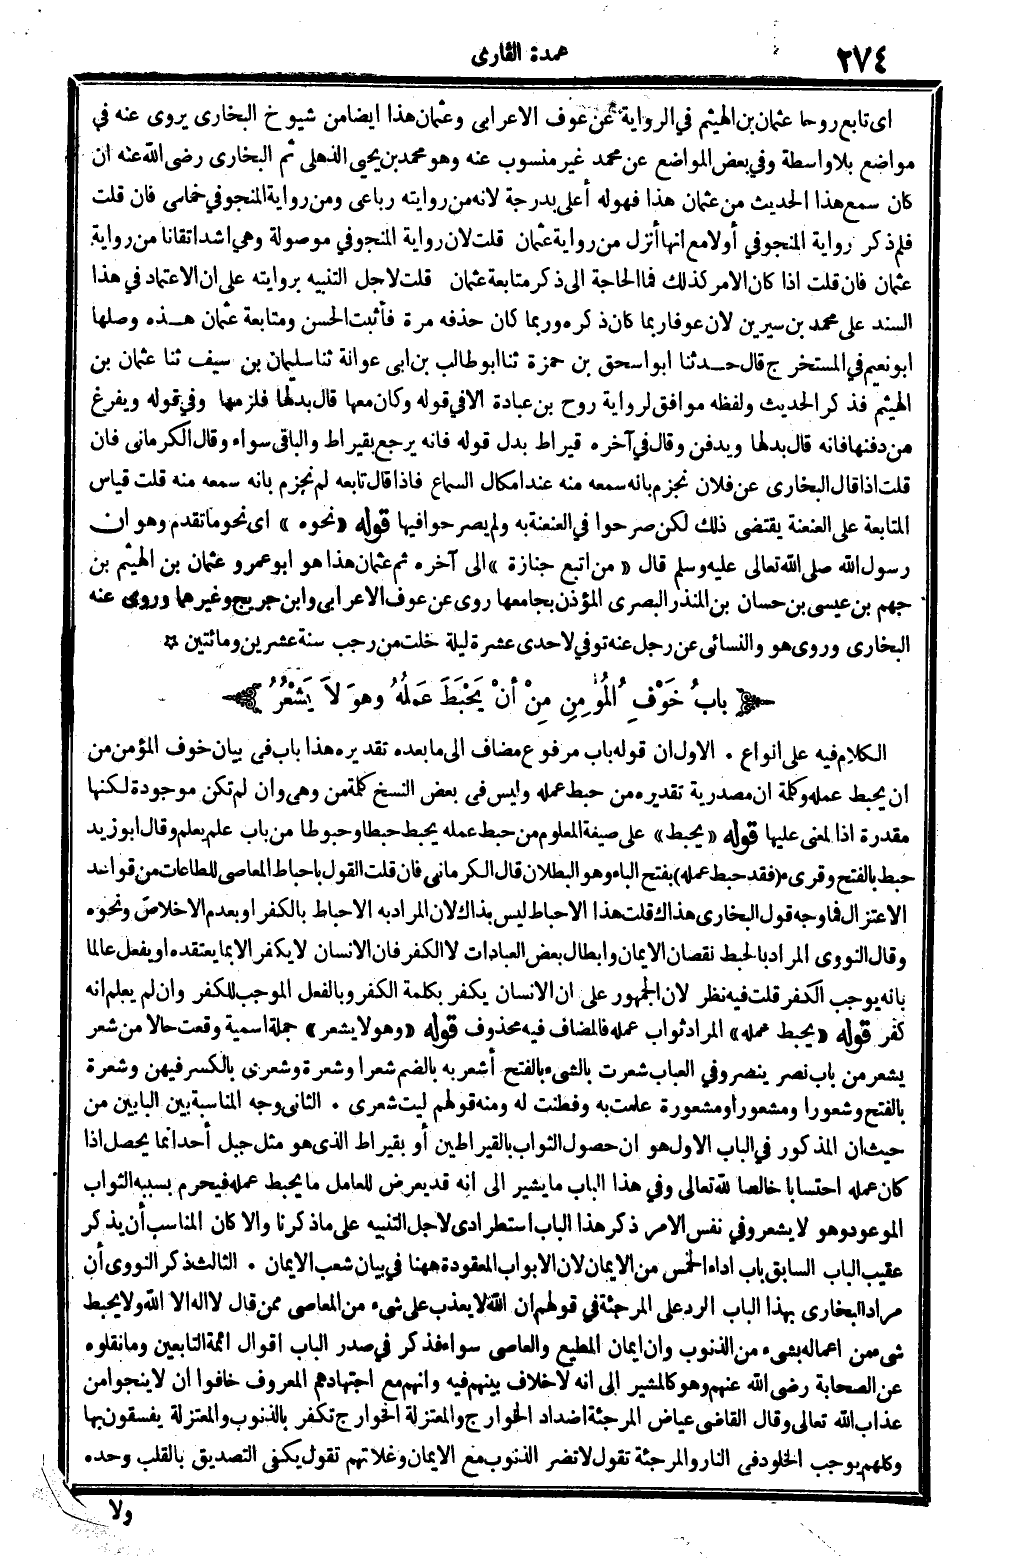 ٢٧٤
عمدة القارى
اى تابع روحا عثمان بن الهيثم في الرواية عن عوف الاعرابى وعثمان هذا ايضا من شيوخ البخارى يروى عنه في
مواضع بلا واسطة وفي بعض المواضع عن محمد غير منسوب عنه وهو محمد بن يحيى الذهلى ثم البخارى رضى الله عنه ان
كان سمع هذا الحديث من عثمان هذا فهو له أعلى بدرجة لانه من روايته رباعى ومن رواية المنجوفي خماسى فان قلت
فلم ذكر رواية المنجوفي أولا مع انها أنزل من رواية عثمان قلت لان رواية المنجوفي موصولة وهي اشد اتقانا من رواية
عثمان فان قلت اذا كان الامر كذلك فما الحاجة الى ذكر متابعة عثمان قلت لاجل التنبيه بروايته على ان الاعتماد في هذا
السند على محمد بن سيرين لان عوفا ربما كان ذكره وربما كان حذفه مرة فأثبت الحسن ومتابعة عثمان هذه وصلها
ابو نعيم في المستخرج قال حدثنا ابو اسحق بن حمزة ثنا ابو طالب بن ابى عوانة ثنا سليمان بن سيف ثنا عثمان بن
الهيثم فذكر الحديث ولفظه موافق لرواية روح بن عبادة الا في قوله وكان معها قال بدلها فلزمها وفي قوله ويفرغ
من دفنها فانه قال بدلها ويدفن وقال في آخره قيراط بدل قوله فانه يرجع بقيراط والباقى سواء وقال الكرمانى فان
قلت اذا قال البخارى عن فلان نجزم بانه سمعه منه عند امكال السماع فاذا قال تابعه لم نجزم بانه سمعه منه قلت قياس
المتابعة على العنعنة يقتضى ذلك لكن صرحوا في العنعنة به ولم يصرحوا فيها قوله «نحوه» اى نحو ما تقدم وهو ان
رسول الله صلى الله تعالى عليه وسلم قال «من اتبع جنازة» الى آخره ثم عثمان هذا هو ابو عمرو عثمان بن الهيثم بن
جهم بن عيسى بن حسان بن المنذر البصرى المؤذن بجامعها روى عن عوف الاعرابى وابن جريج وغيرهما وروى عنه
البخارى وروى هو والنسائى عن رجل عنه توفي لاحدى عشرة ليلة خلت من رجب سنة عشرين ومائتين ✩
بابُ خَوْفِ المُؤْمِنِ مِنْ أنْ يَحْبَطَ عَمَلُهُ وهوَ لاَ يَشْعُرُ
الكلام فيه على انواع . الاول ان قوله باب مرفوع مضاف الى ما بعده تقديره هذا باب في بيان خوف المؤمن من
ان يحبط عمله وكلمة ان مصدرية تقديره من حبط عمله وليس فى بعض النسخ كلمة من وهى وان لم تكن موجودة لكنها
مقدرة اذ المعنى عليها قوله «يحبط» على صيغة المعلوم من حبط عمله يحبط حبطا وحبوطا من باب علم يعلم وقال ابو زيد
حبط بالفتح وقرىء (فقد حبط عمله) بفتح الباء وهو البطلان قال الكرمانى فان قلت القول باحباط المعاصى للطاعات من قواعد
الاعتزال فما وجه قول البخارى هذاك قلت هذا الاحباط ليس بذاك لان المراد به الاحباط بالكفر او بعدم الاخلاص ونحوه
وقال النووى المراد بالحبط نقصان الايمان وابطال بعض العبادات لا الكفر فان الانسان لا يكفر الا بما يعتقده او يفعل عالما
بانه يوجب الكفر قلت فيه نظر لان الجمهور على ان الانسان يكفر بكلمة الكفر وبالفعل الموجب للكفر وان لم يعلم انه
كفر قوله «يحبط عمله» المراد ثواب عمله فالمضاف فيه محذوف قوله «وهو لا يشعر» جملة اسمية وقعت حالا من شعر
يشعر من باب نصر ينصر وفي العباب شعرت بالشىء بالفتح أشعر به بالضم شعرا وشعرة وشعرى بالكسر فيهن وشعرة
بالفتح وشعورا ومشعورا ومشعورة علمت به وفطنت له ومنه قولهم ليت شعرى . الثانى وجه المناسبة بين البابين من
حيث ان المذكور في الباب الاول هو ان حصول الثواب بالقيراطين أو بقيراط الذى هو مثل جبل أحد انما يحصل اذا
كان عمله احتسابا خالصا لله تعالى وفي هذا الباب ما يشير الى انه قد يعرض للعامل ما يحبط عمله فيحرم بسببه الثواب
الموعود وهو لا يشعر وفي نفس الامر ذكر هذا الباب استطرادى لاجل التنبيه على ما ذكرنا والا كان المناسب أن يذكر
عقيب الباب السابق باب اداء الخمس من الايمان لان الابواب المعقودة ههنا في بيان شعب الايمان . الثالث ذكر النووى أن
مراد البخارى بهذا الباب الرد على المرجئة في قولهم ان الله لا يعذب على شىء من المعاصى ممن قال لا اله الا الله ولا يحبط
شىء من اعماله بشىء من الذنوب وان ايمان المطيع والعاصى سواء فذكر في صدر الباب اقوال ائمة التابعين وما نقلوه
عن الصحابة رضى الله عنهم وهو كالمشير الى انه لا خلاف بينهم فيه وانهم مع اجتهادهم المعروف خافوا ان لا ينجوا من
عذاب الله تعالى وقال القاضى عياض المرجئة اضداد الخوارج والمعتزلة الخوارج تكفر بالذنوب والمعتزلة يفسقون بها
وكلهم يوجب الخلود فى النار والمرجئة تقول لا تضر الذنوب مع الايمان وغلاتهم تقول يكفى التصديق بالقلب وحده
ولا